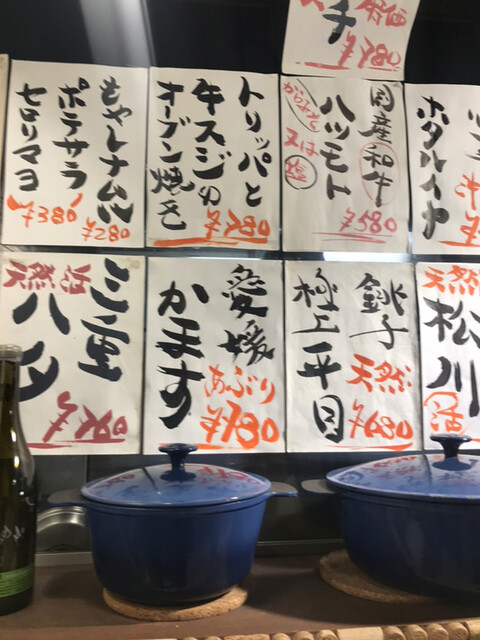 チ
¥780
もやしナムル
ポテサラ
セロリマヨ
¥380
¥280
トリッパと
牛スジの
オーブン焼き
¥780
国産和牛
ハツモト
からあげ
又は
塩
¥580
ホタルイカ
三重
天然
ハタ
¥780
愛媛
かます
あぶり
¥780
銚子
天然
極上平目
¥680
天然
松川
活